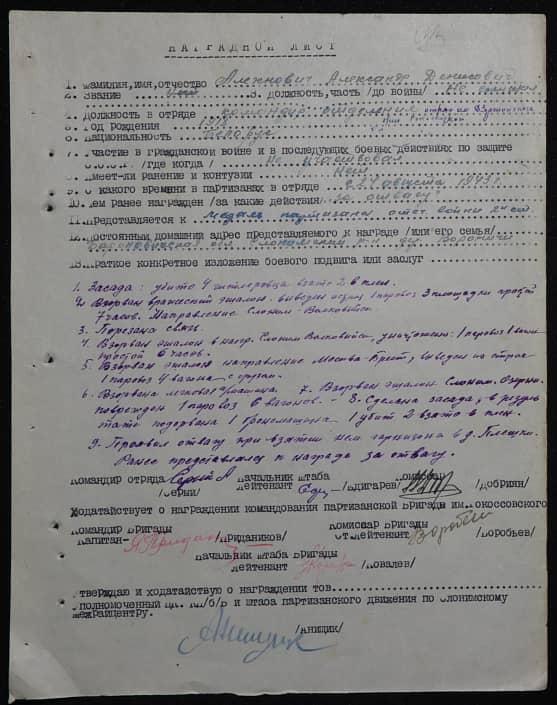 НАГРАДНОЙ ЛИСТ
1. Фамилия, имя, отчество Алехнович Александр Денисович
2. Звание 3. Должность, часть /до войны/
4. Должность в отряде командир отделения
5. Год рождения
6. Национальность Беларус
7. Участие в гражданской войне и в последующих боевых действиях по защите
/где когда / Не участвовал
8. Имеет-ли ранение и контузии нет
9. С какого времени в партизанах в отряде с 24 августа 1943 г.
10. Чем ранее награжден /за какие действия/ за отвагу
11. Представляется к медаль партизана отеч. войны 2й ст.
12. Постоянный домашний адрес представляемого к награде /или его семьи/
Барановичская обл Слонимский р-н дер. Вороничи
13. Краткое конкретное изложение боевого подвига или заслуг
1. Засада: убито 4 гитлеровца взято 2 в плен.
2. Взорван вражеский эшалон. выведен из строя 1 паровоз 3 площадки простой
7 часов. Направление Слоним-Волковыск.
3. Порезана связь.
4. Взорван эшалон в напр. Слоним Волковыск, уничтожены: 1 паровоз 1 вагон
простой 6 часов.
5. Взорван эшалон направление Москва-Брест, выведен из строя
1 паровоз 4 вагона с грузом.
6. Взорвана легковая машина. 7. Взорван эшалон. Слоним-Озерн.
поврежден 1 паровоз 6 вагонов. - 8. Сделана засада, в резуль
тате подорвана 1 бронемашина 1 убит 2 взято в плен.
9. Проявил отвагу при взятии нем гарнизона в д. Плешки.
Ранее представлялся к награде за отвагу.
Командир отряда Серый Начальник штаба Комиссар
/Серый/ Лейтенант /Едигарев/ /Добриян/
Ходатайствует о награждении командования партизанской Бригады им. Рокоссовского
Командир Бригады Комиссар Бригады
Капитан- /Придаников/ Ст. Лейтенант /Воробьев/
Начальник штаба Бригады
Лейтенант /Ковалев/
Утверждаю и ходатайствую о награждении тов.
Уполномоченный ЦК КП/б/Б и штаба партизанского движения по Слонимскому
межрайцентру.
Анищик /Анищик/